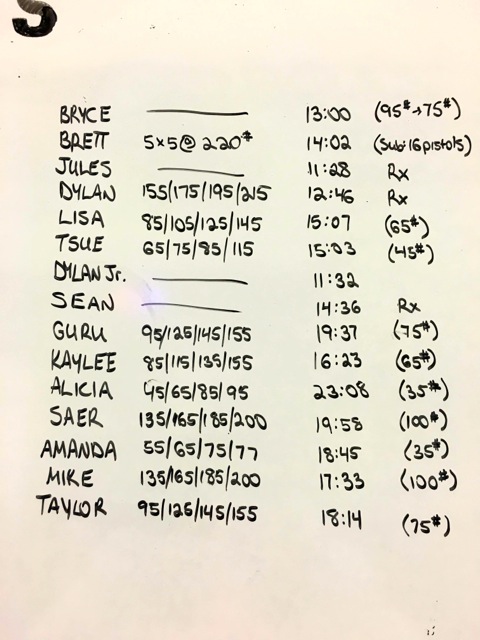 S
BRYCE ——— 13:00 (95#→75#)
BRETT 5x5@220# 14:02 (Sub: 16 pistols)
JULES ——— 11:28 Rx
DYLAN 155/175/195/215 12:46 Rx
LISA 85/105/125/145 15:07 (65#)
TSUE 65/75/85/115 15:03 (45#)
DYLAN Jr. ——— 11:32
SEAN ——— 14:36 Rx
GURU 95/125/145/155 19:37 (75#)
KAYLEE 85/115/135/155 16:23 (65#)
ALICIA 45/65/85/95 23:08 (35#)
SAER 135/165/185/200 19:58 (100#)
AMANDA 55/65/75/77 18:45 (35#)
MIKE 135/165/185/200 17:33 (100#)
TAYLOR 95/125/145/155 18:14 (75#)